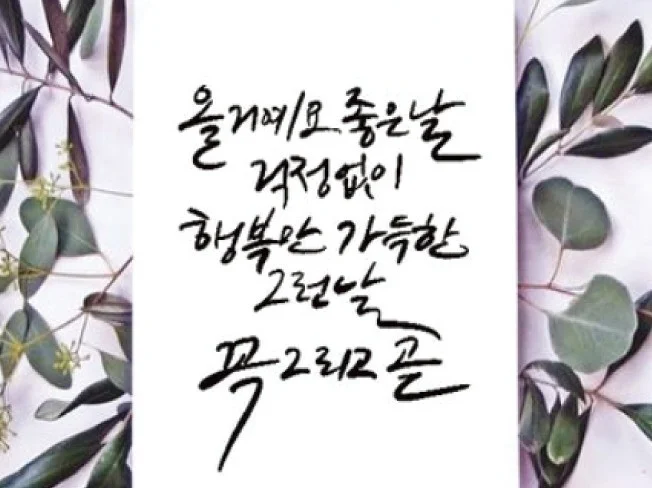 올거예요 좋은날
걱정없이
행복만 가득한
그런날
꼭 그리고 곧